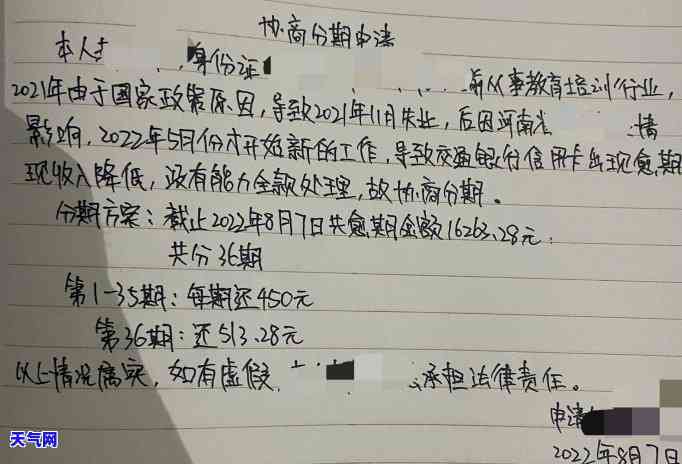 协商分期申请
本人 身份证
前从事教育培训行业,
2021年由于国家政策原因,导致2021年11月失业,后因河南省 情
影响,2022年5月份才开始新的工作,导致交通银行信用卡出现逾期
现收入降低,没有能力全款处理,故协商分期。
分期方案:截止2022年8月7日共逾期金额16263.28元.
共分36期
第1-35期:每期还450元
第36期:还513.28元
以上情况属实,如有虚假 承担法律责任。
申请
2022年8月7日
天气网